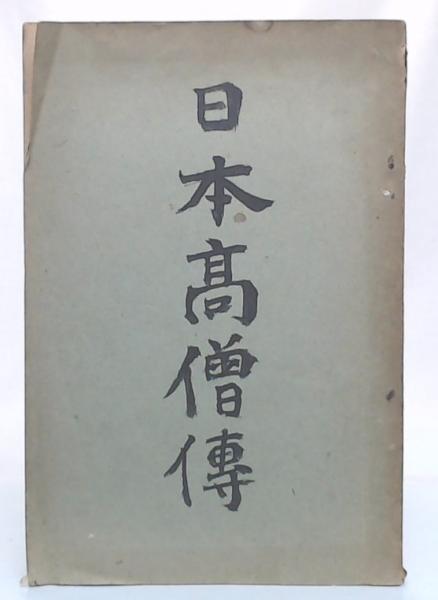 日本髙僧傳